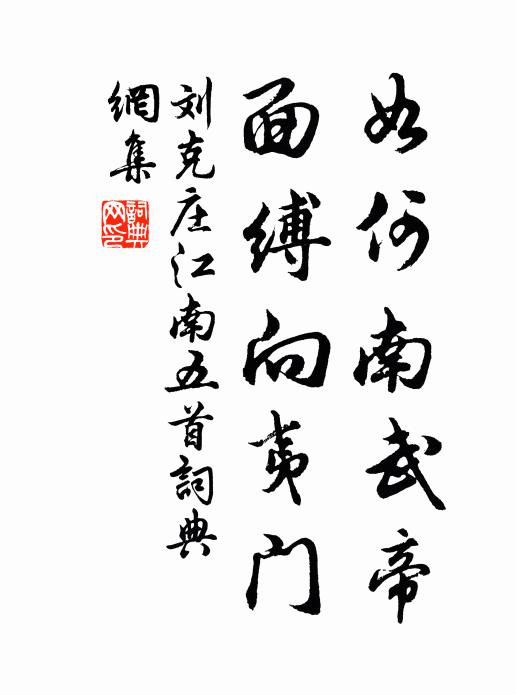 如何南武帝
面縛向夷門
刘克庄江南五首詞典
網集
詞典網印